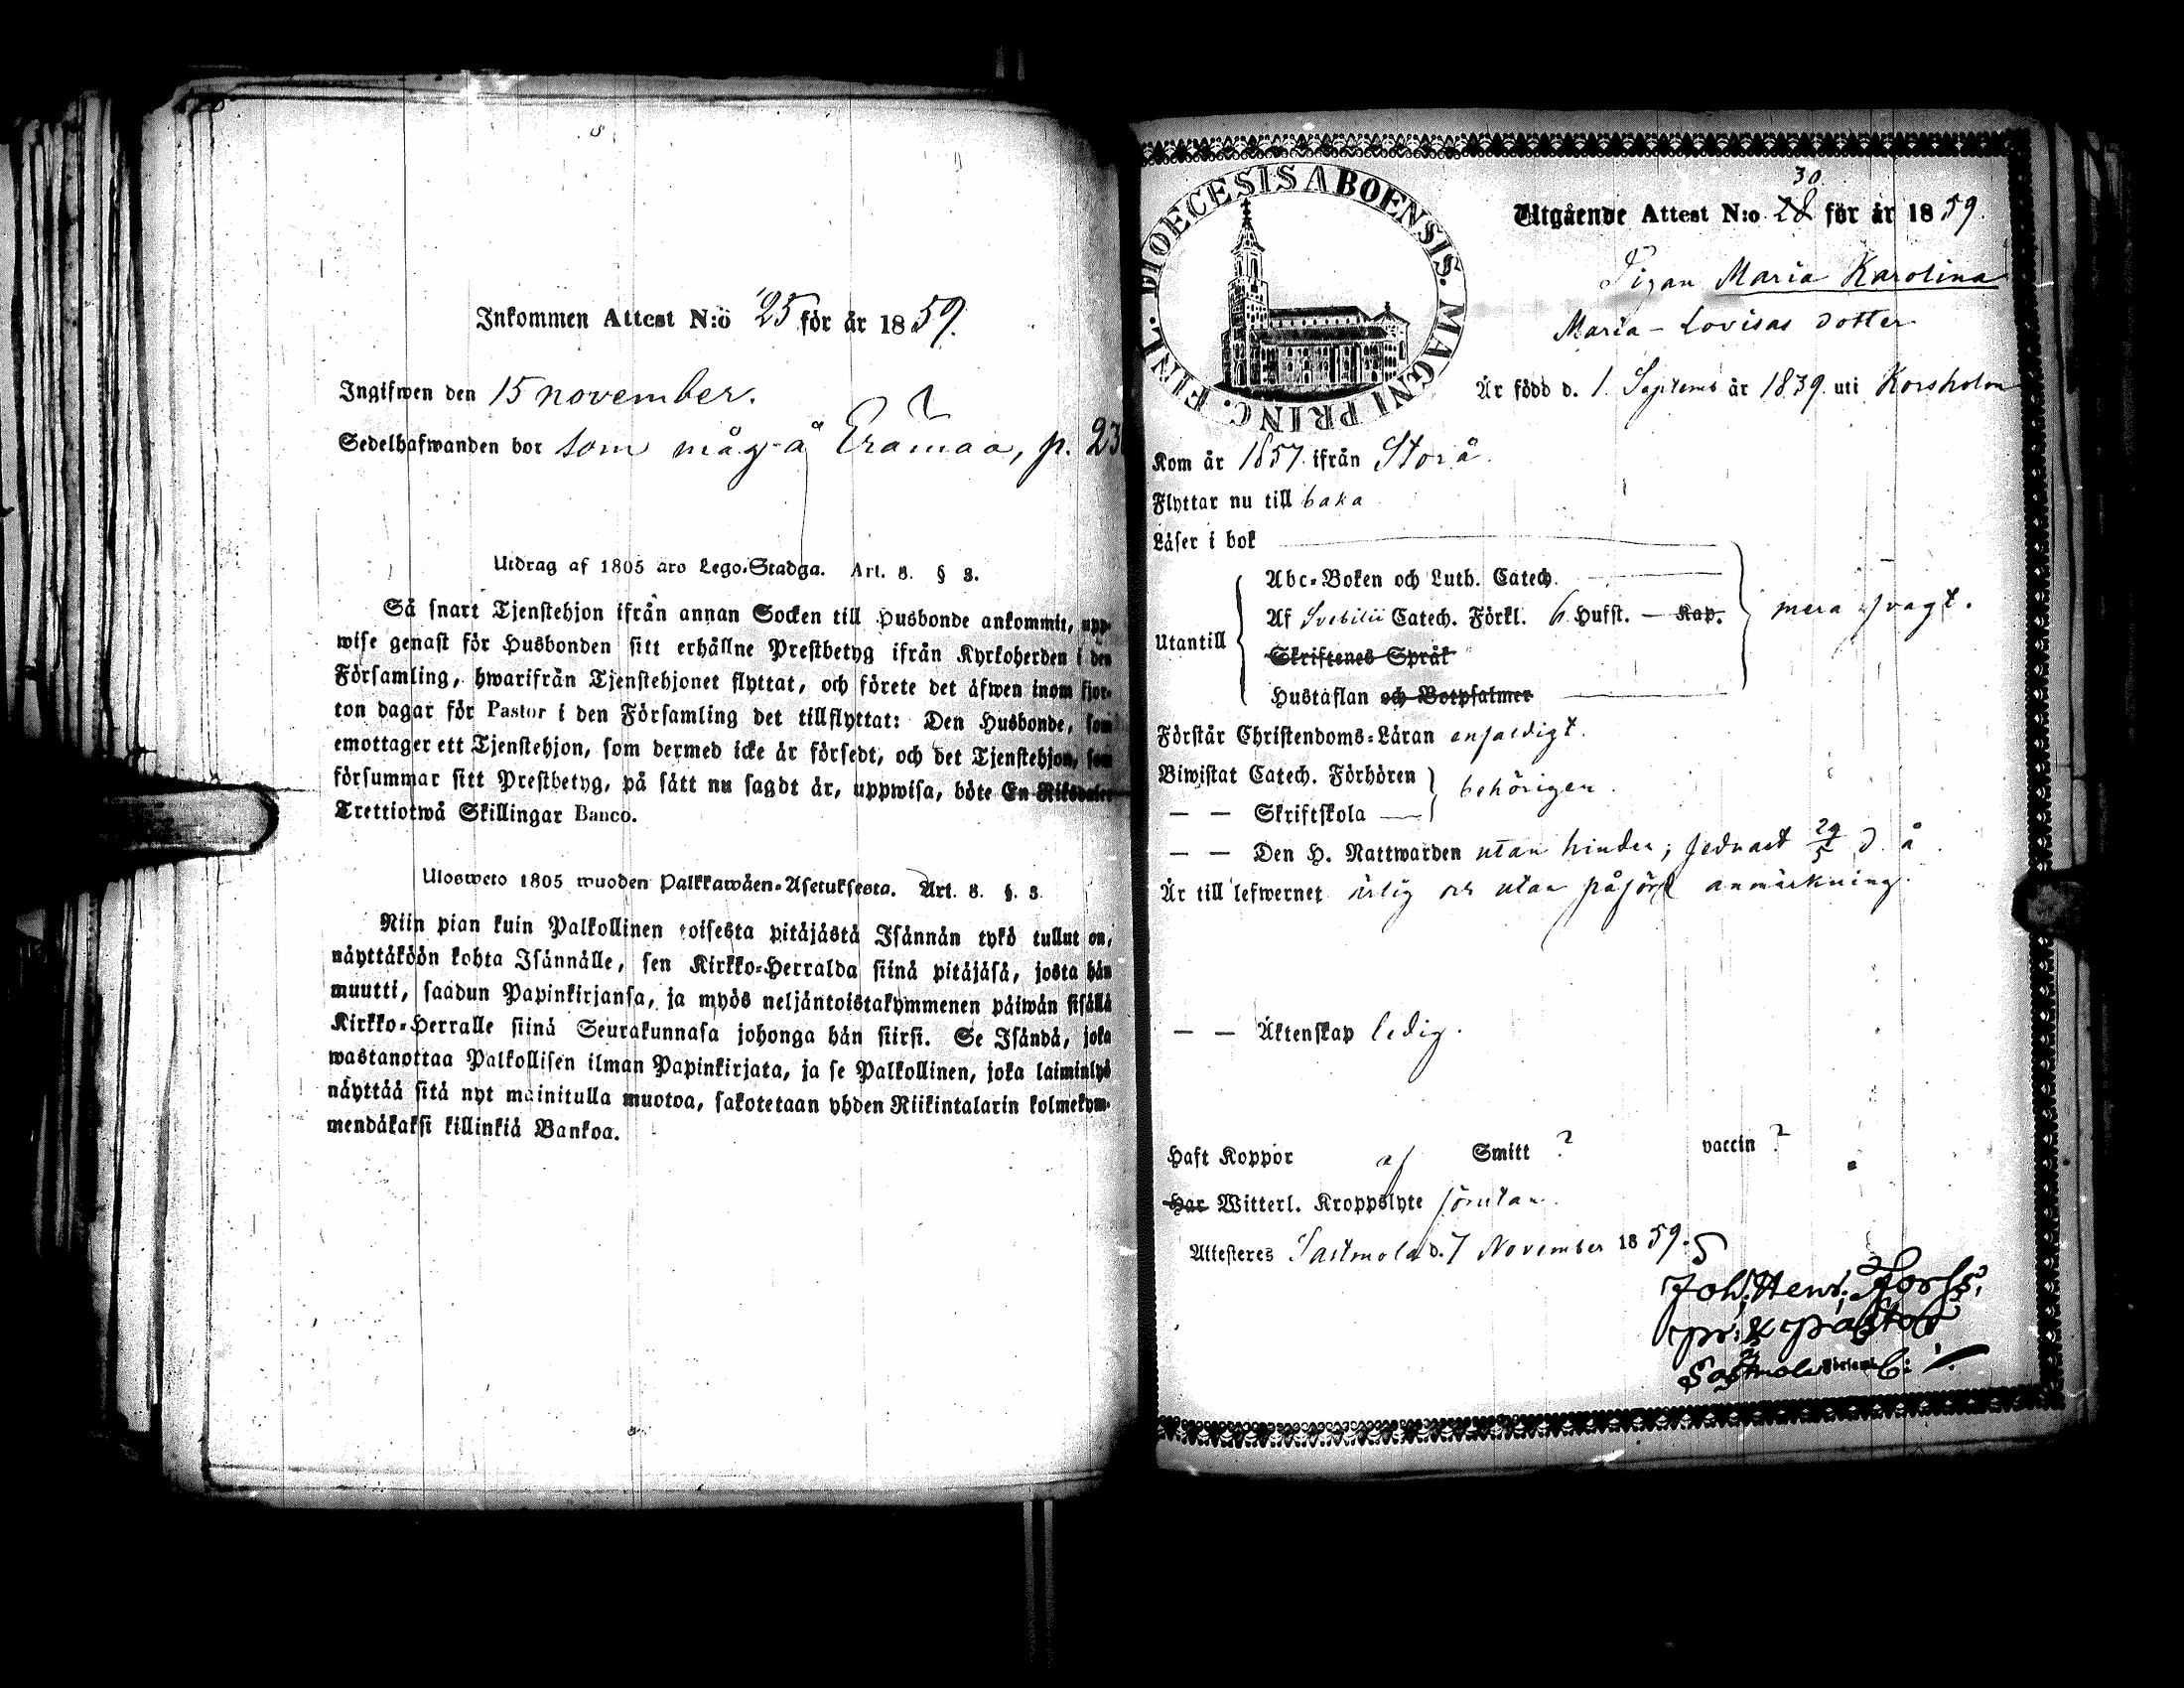 Inkommen Attest N:o 25 för år 1859.
Ingifwen den 15 november.
Sedelhafwanden bor som måg å Erämaa, p. 23
Utdrag af 1805 års Lego-Stadga. Art. 8. § 3.
Så snart Tjenstehjon ifrån annan Socken till Husbonde ankommit, upp-
wise genast för Husbonden sitt erhållne Prestbetyg ifrån Kyrkoherden i den
Församling, hwarifrån Tjenstehjonet flyttat, och förete det äfwen inom fjor-
ton dagar för Pastor i den Församling det tillflyttat: Den Husbonde, som
emottager ett Tjenstehjon, som dermed icke är försedt, och det Tjenstehjon, som
försummar sitt Prestbetyg, på sätt nu sagdt är, uppwisa, böte En Riksdaler
Trettiotwå Skillingar Banco.
Ulosweto 1805 wuoden Palkkawäen-Asetuksesta. Art. 8. §. 3.
Niin pian kuin Palkollinen toisesta pitäjästä Isännän tykö tullut on,
näyttäköön kohta Isännälle, sen Kirkko-Herralda siinä pitäjäsä, josta hän
muutti, saadun Papinkirjansa, ja myös neljäntoistakymmenen päiwän sisällä
Kirkko-Herralle siinä Seurakunnasa johonga hän siirsi. Se Isändä, joka
wastanottaa Palkollisen ilman Papinkirjata, ja se Palkollinen, joka laiminlyö
näyttää sitä nyt mainitulla muotoa, sakotetaan yhden Riikintalarin kolmekym-
mendäkaksi killinkiä Bankoa.
DIOECESIS ABOENSIS. MAGNI PRINC. FINL.
30
Utgående Attest N:o 28 för år 1859.
Pigan Maria Karolina
Maria-Lovisas dotter
Är född d. 1 Septemb år 1839. uti Korsholm
Kom år 1857. ifrån Storå.
Flyttar nu till baka
Läser i bok
Abc-Boken och Luth. Catech.
Utantill Af Svebilii Catech. Förkl. 6 Hufst. — Kap. mera svagt.
Skriftenes Språk
Hustaflan och Botpsalmer
Förstår Christendoms-Läran enfaldigt.
Biwistat Catech. Förhören behörigen.
— — Skriftskola —
— — Den H. Nattwarden utan hinder, sednast 29/5 d. å.
Är till lefwernet ärlig och utan påförd anmärkning.
— — Äktenskap ledig.
Haft Koppor af Smitt ? vaccin ?
Har Witterl. Kroppslyte förutan.
Attesteres Sastmola d. 7 November 1859.
Joh: Henr: Forss,
pr: & Pastor
Sastmola